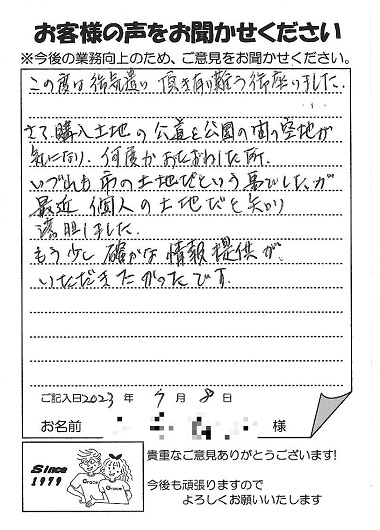 お客様の声をお聞かせください
※今後の業務向上のため、ご意見をお聞かせください。
この度は御気遣い頂き有り難う御座いました.
さて、購入土地の公道と公園の間の空地が
気になり、何度かおたずねした所、
いづれも市の土地だという事でしたが
最近個人の土地だと知り
落胆しました.
もう少し確かな情報提供が、
いただきたかったです.
ご記入日2023年 月8日
お名前 様
Since
1979
Grace
Grace
貴重なご意見ありがとうございます!
今後も頑張りますので
よろしくお願いいたします